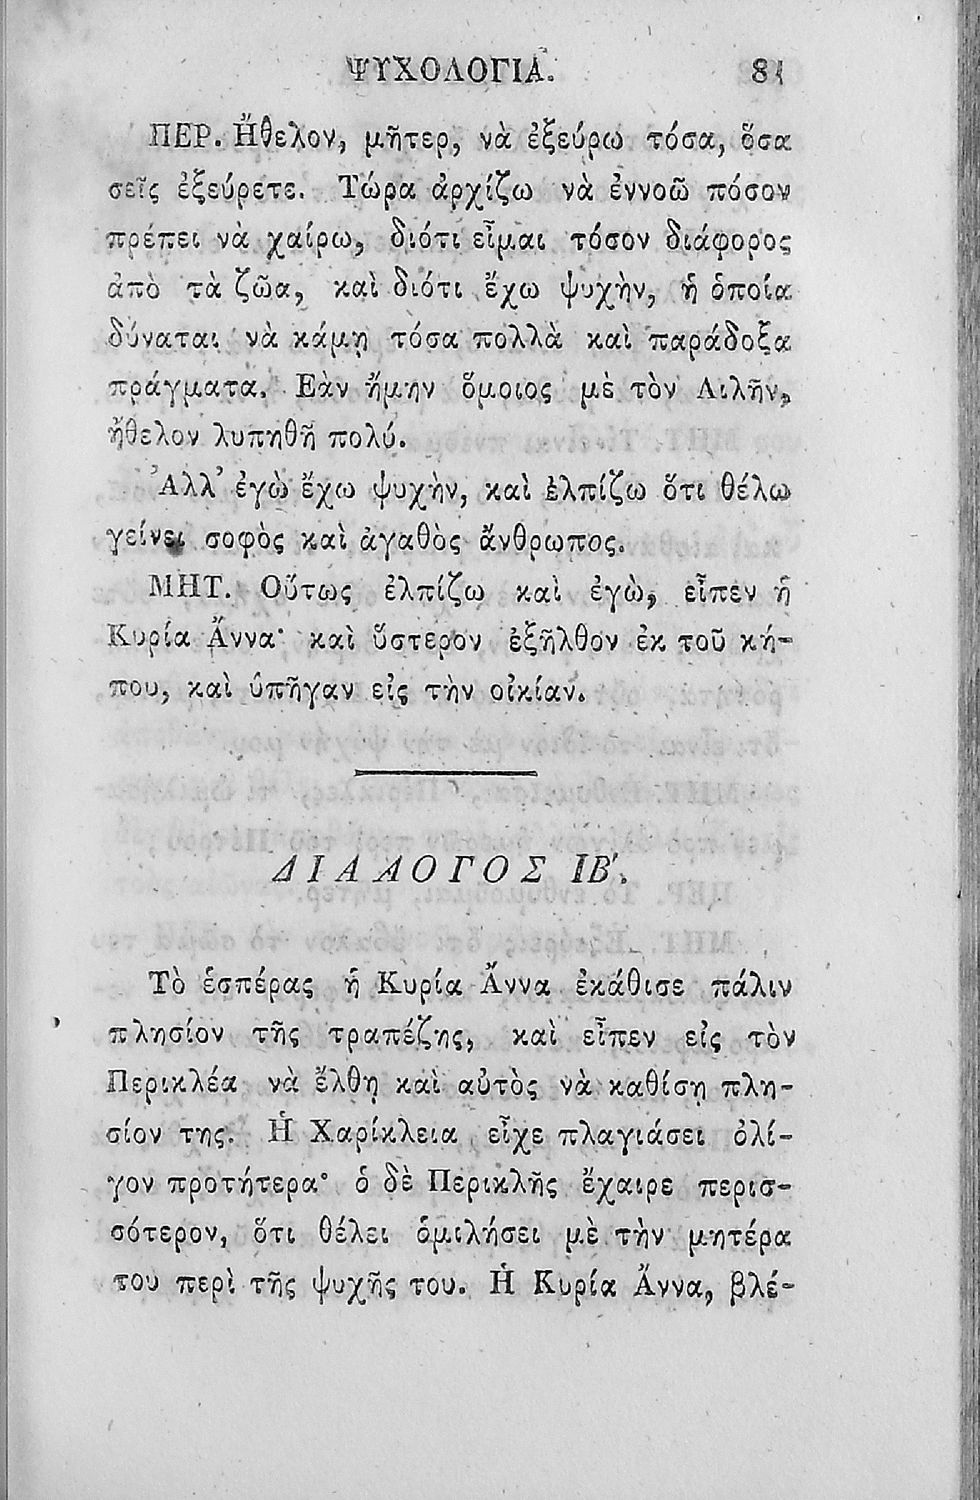 ΨΥΧΟΛΟΓΙΑ. 81
ΠΕΡ. Ἤθελον, μῆτερ, νὰ ἐξεύρω τόσα, ὅσα
σεῖς ἐξεύρετε. Τώρα ἀρχίζω νὰ ἐννοῶ πόσον
πρέπει νὰ χαίρω, διότι εἶμαι τόσον διάφορος
ἀπὸ τὰ ζῶα, καὶ διότι ἔχω ψυχὴν, ἡ ὁποία
δύναται νὰ κάμῃ τόσα πολλὰ καὶ παράδοξα
πράγματα. Εὰν ἤμην ὅμοιος μὲ τὸν Λιλῆν,
ἤθελον λυπηθῆ πολύ.
Ἀλλ’ ἐγὼ ἔχω ψυχὴν, καὶ ἐλπίζω ὅτι θέλω
γείνει σοφὸς καὶ ἀγαθὸς ἄνθρωπος.
ΜΗΤ. Οὕτως ἐλπίζω καὶ ἐγὼ, εἶπεν ἡ
Κυρία Ἄννα· καὶ ὕστερον ἐξῆλθον ἐκ τοῦ κή-
που, καὶ ὑπῆγαν εἰς τὴν οἰκίαν.
ΔΙΑΛΟΓΟΣ ΙΒʹ.
Τὸ ἑσπέρας ἡ Κυρία Ἄννα ἐκάθισε πάλιν
πλησίον τῆς τραπέζης, καὶ εἶπεν εἰς τὸν
Περικλέα νὰ ἔλθῃ καὶ αὐτὸς νὰ καθίσῃ πλη-
σίον της. Ἡ Χαρίκλεια εἶχε πλαγιάσει ὀλί-
γον προτήτερα· ὁ δὲ Περικλῆς ἔχαιρε περισ-
σότερον, ὅτι θέλει ὁμιλήσει μὲ τὴν μητέρα
του περὶ τῆς ψυχῆς του. Ἡ Κυρία Ἄννα, βλέ-